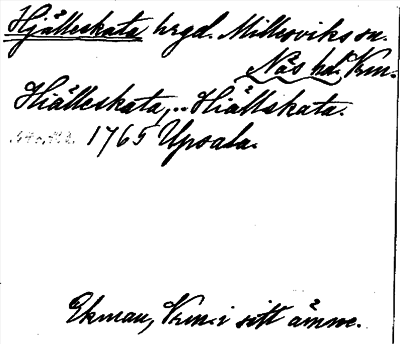 Hjälleskata hrgd. Millesviks sn.
Näs hd. Krm.
Hiälleskata,.. Hiällskata.
1765 Upsala.
Ekman, Krm. i sitt ämne.